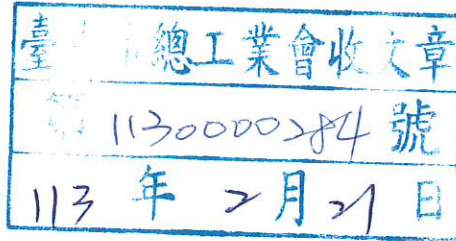 臺 市總工業會收文章
第 1130000284 號
113 年 2 月 21 日